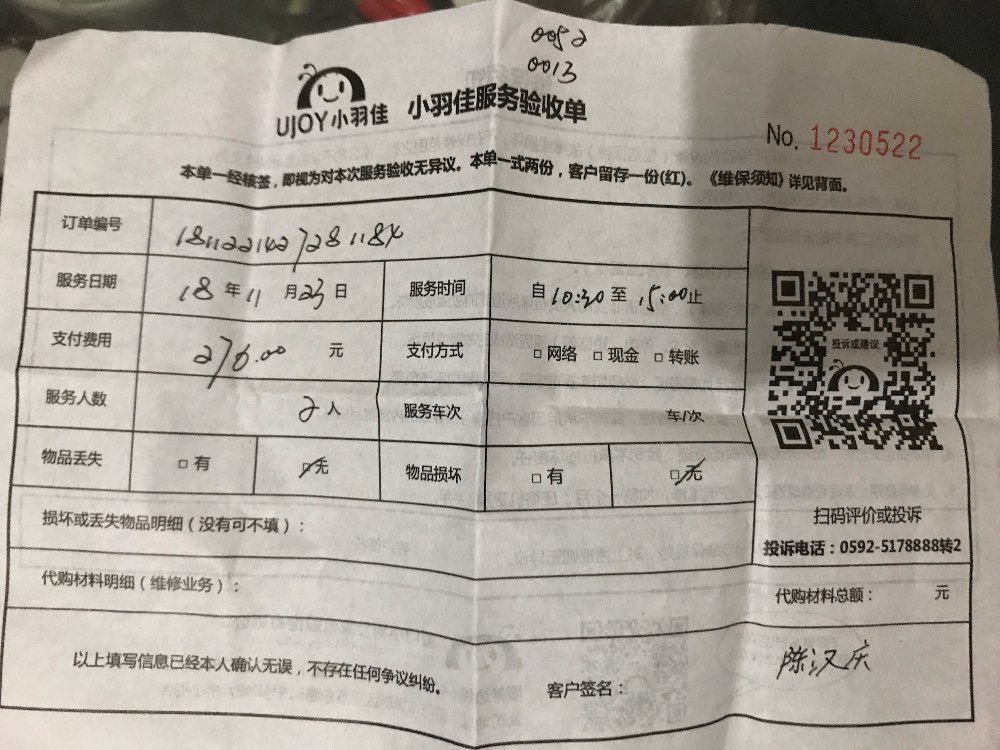 0052
0013
UJOY小羽佳 小羽佳服务验收单
No. 1230522
本单一经核签，即视为对本次服务验收无异议。本单一式两份，客户留存一份(红)。《维保须知》详见背面。
订单编号
服务日期 18 年 11 月 23 日 服务时间 自 10:30 至 15:00 止
支付费用 276.00 元 支付方式 □ 网络 □ 现金 □ 转账
投诉或建议
服务人数 2 人 服务车次 车/次
物品丢失 □ 有 □ 无 物品损坏 □ 有 □ 无
损坏或丢失物品明细（没有可不填）：
扫码评价或投诉
投诉电话：0592-5178888转2
代购材料明细（维修业务）：
代购材料总额： 元
以上填写信息已经本人确认无误，不存在任何争议纠纷。
客户签名： 陈汉庆